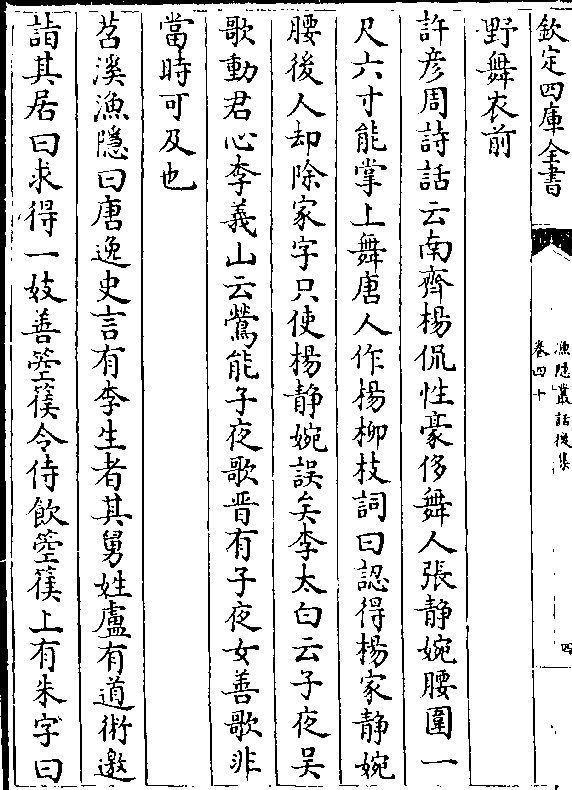 欽定四庫全書
漁隱叢話後集
卷四十
四
野舞衣前
許彦周詩話云南齊楊侃性豪侈舞人張静婉腰圍一
尺六寸能掌上舞唐人作楊柳枝詞曰認得楊家静婉
腰後人却除家字只使楊静婉誤矣李太白云子夜吴
歌動君心李義山云鶯能子夜歌晋有子夜女善歌非
當時可及也
苕溪漁隱曰唐逸史言有李生者其舅姓盧有道術邀
詣其居曰求得一妓善箜篌令侍飲箜篌上有朱字曰